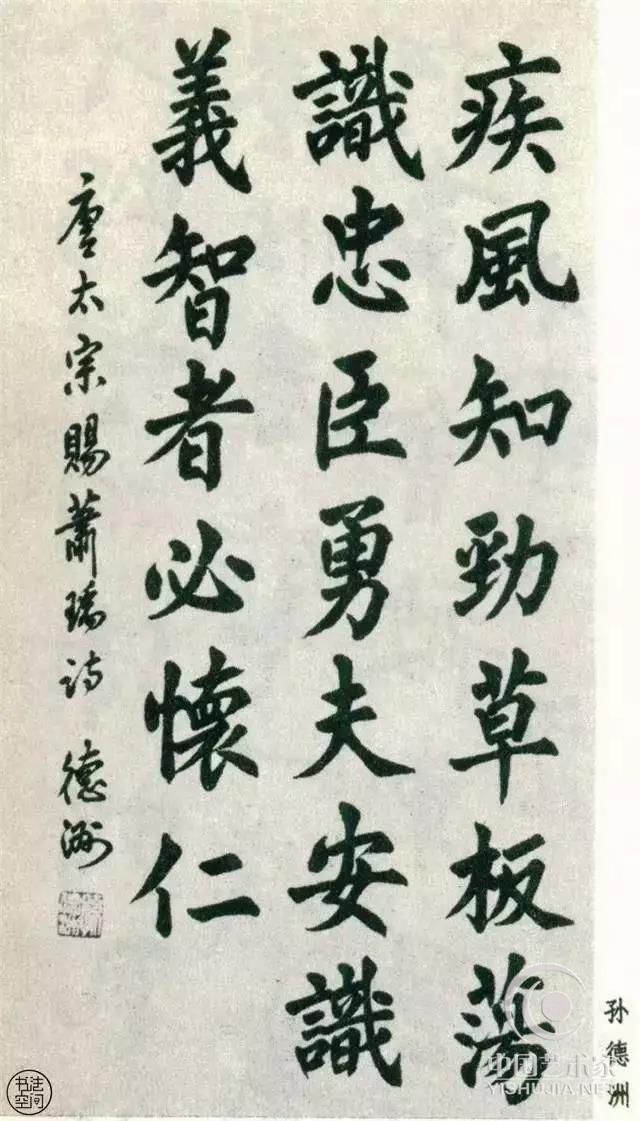 疾風知勁草板蕩
識忠臣勇夫安識
義智者必懷仁
唐太宗賜蕭瑀诗 德洲
孙德洲
中国艺术家
YISHUJIA.NET
书法
空间